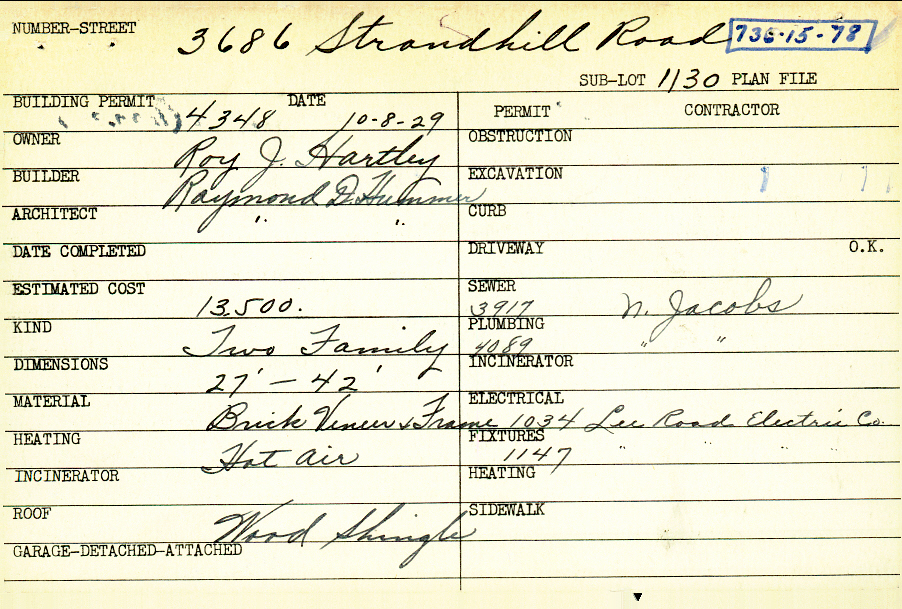 NUMBER-STREET 3686 Strandhill Road 736-15-78
SUB-LOT 1130 PLAN FILE
BUILDING PERMIT 4348 DATE 10-8-29
PERMIT CONTRACTOR
OWNER Roy J. Hartley
OBSTRUCTION
BUILDER Raymond D. Hummer
EXCAVATION
ARCHITECT " "
CURB
DATE COMPLETED
DRIVEWAY O.K.
ESTIMATED COST 13.500.
SEWER 3917 N. Jacobs
KIND Two Family
PLUMBING 4089 " "
DIMENSIONS 27' - 42'
INCINERATOR
MATERIAL Brick Veneer & Frame
ELECTRICAL 1034 Lee Road Electric Co.
HEATING Hot Air
FIXTURES 1147 " " "
INCINERATOR
HEATING
ROOF Wood Shingle
SIDEWALK
GARAGE-DETACHED-ATTACHED